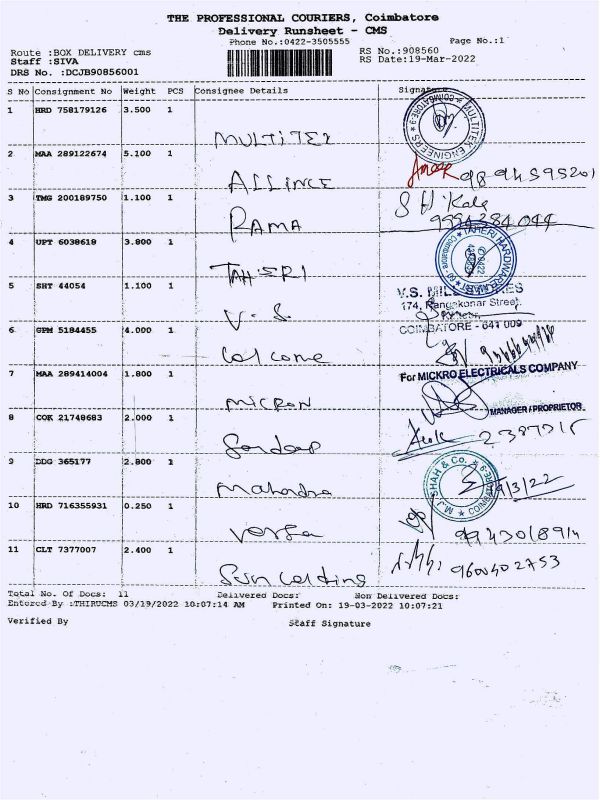 THE PROFESSIONAL COURIERS, Coimbatore
Delivery Runsheet - CMS
Phone No.:0422-3505555
Page No.:1
Route :BOX DELIVERY cms
RS No.:908560
Staff :SIVA
RS Date:19-Mar-2022
DRS No. :DCJB90856001
S No Consignment No Weight PCS Consignee Details Signature
1 HRD 758179126 3.500 1
MULTITEX
MULTITEK ENGINEERS
COIMBATORE-9
2 MAA 289122674 5.100 1
ALLINCE
9894595201
3 TMG 200189750 1.100 1
RAMA
4 UPT 6038618 3.800 1
TAHERI
5 SHT 44054 1.100 1
V.S.
174, Rangakonar Street,
COIMBATORE - 641 009
6 GPM 5184455 4.000 1
Welcome
7 MAA 289414004 1.800 1
MICRON
For MICKRO ELECTRICALS COMPANY
MANAGER / PROPRIETOR
8 COK 21748683 2.000 1
9 DDG 365177 2.800 1
Mahendra
M.J. SHAH & Co.
10 HRD 716355931 0.250 1
11 CLT 7377007 2.400 1
9600402753
Total No. Of Docs: 11 Delivered Docs: Non Delivered Docs:
Entered By :THIRUCMS 03/19/2022 10:07:14 AM Printed On: 19-03-2022 10:07:21
Verified By Staff Signature